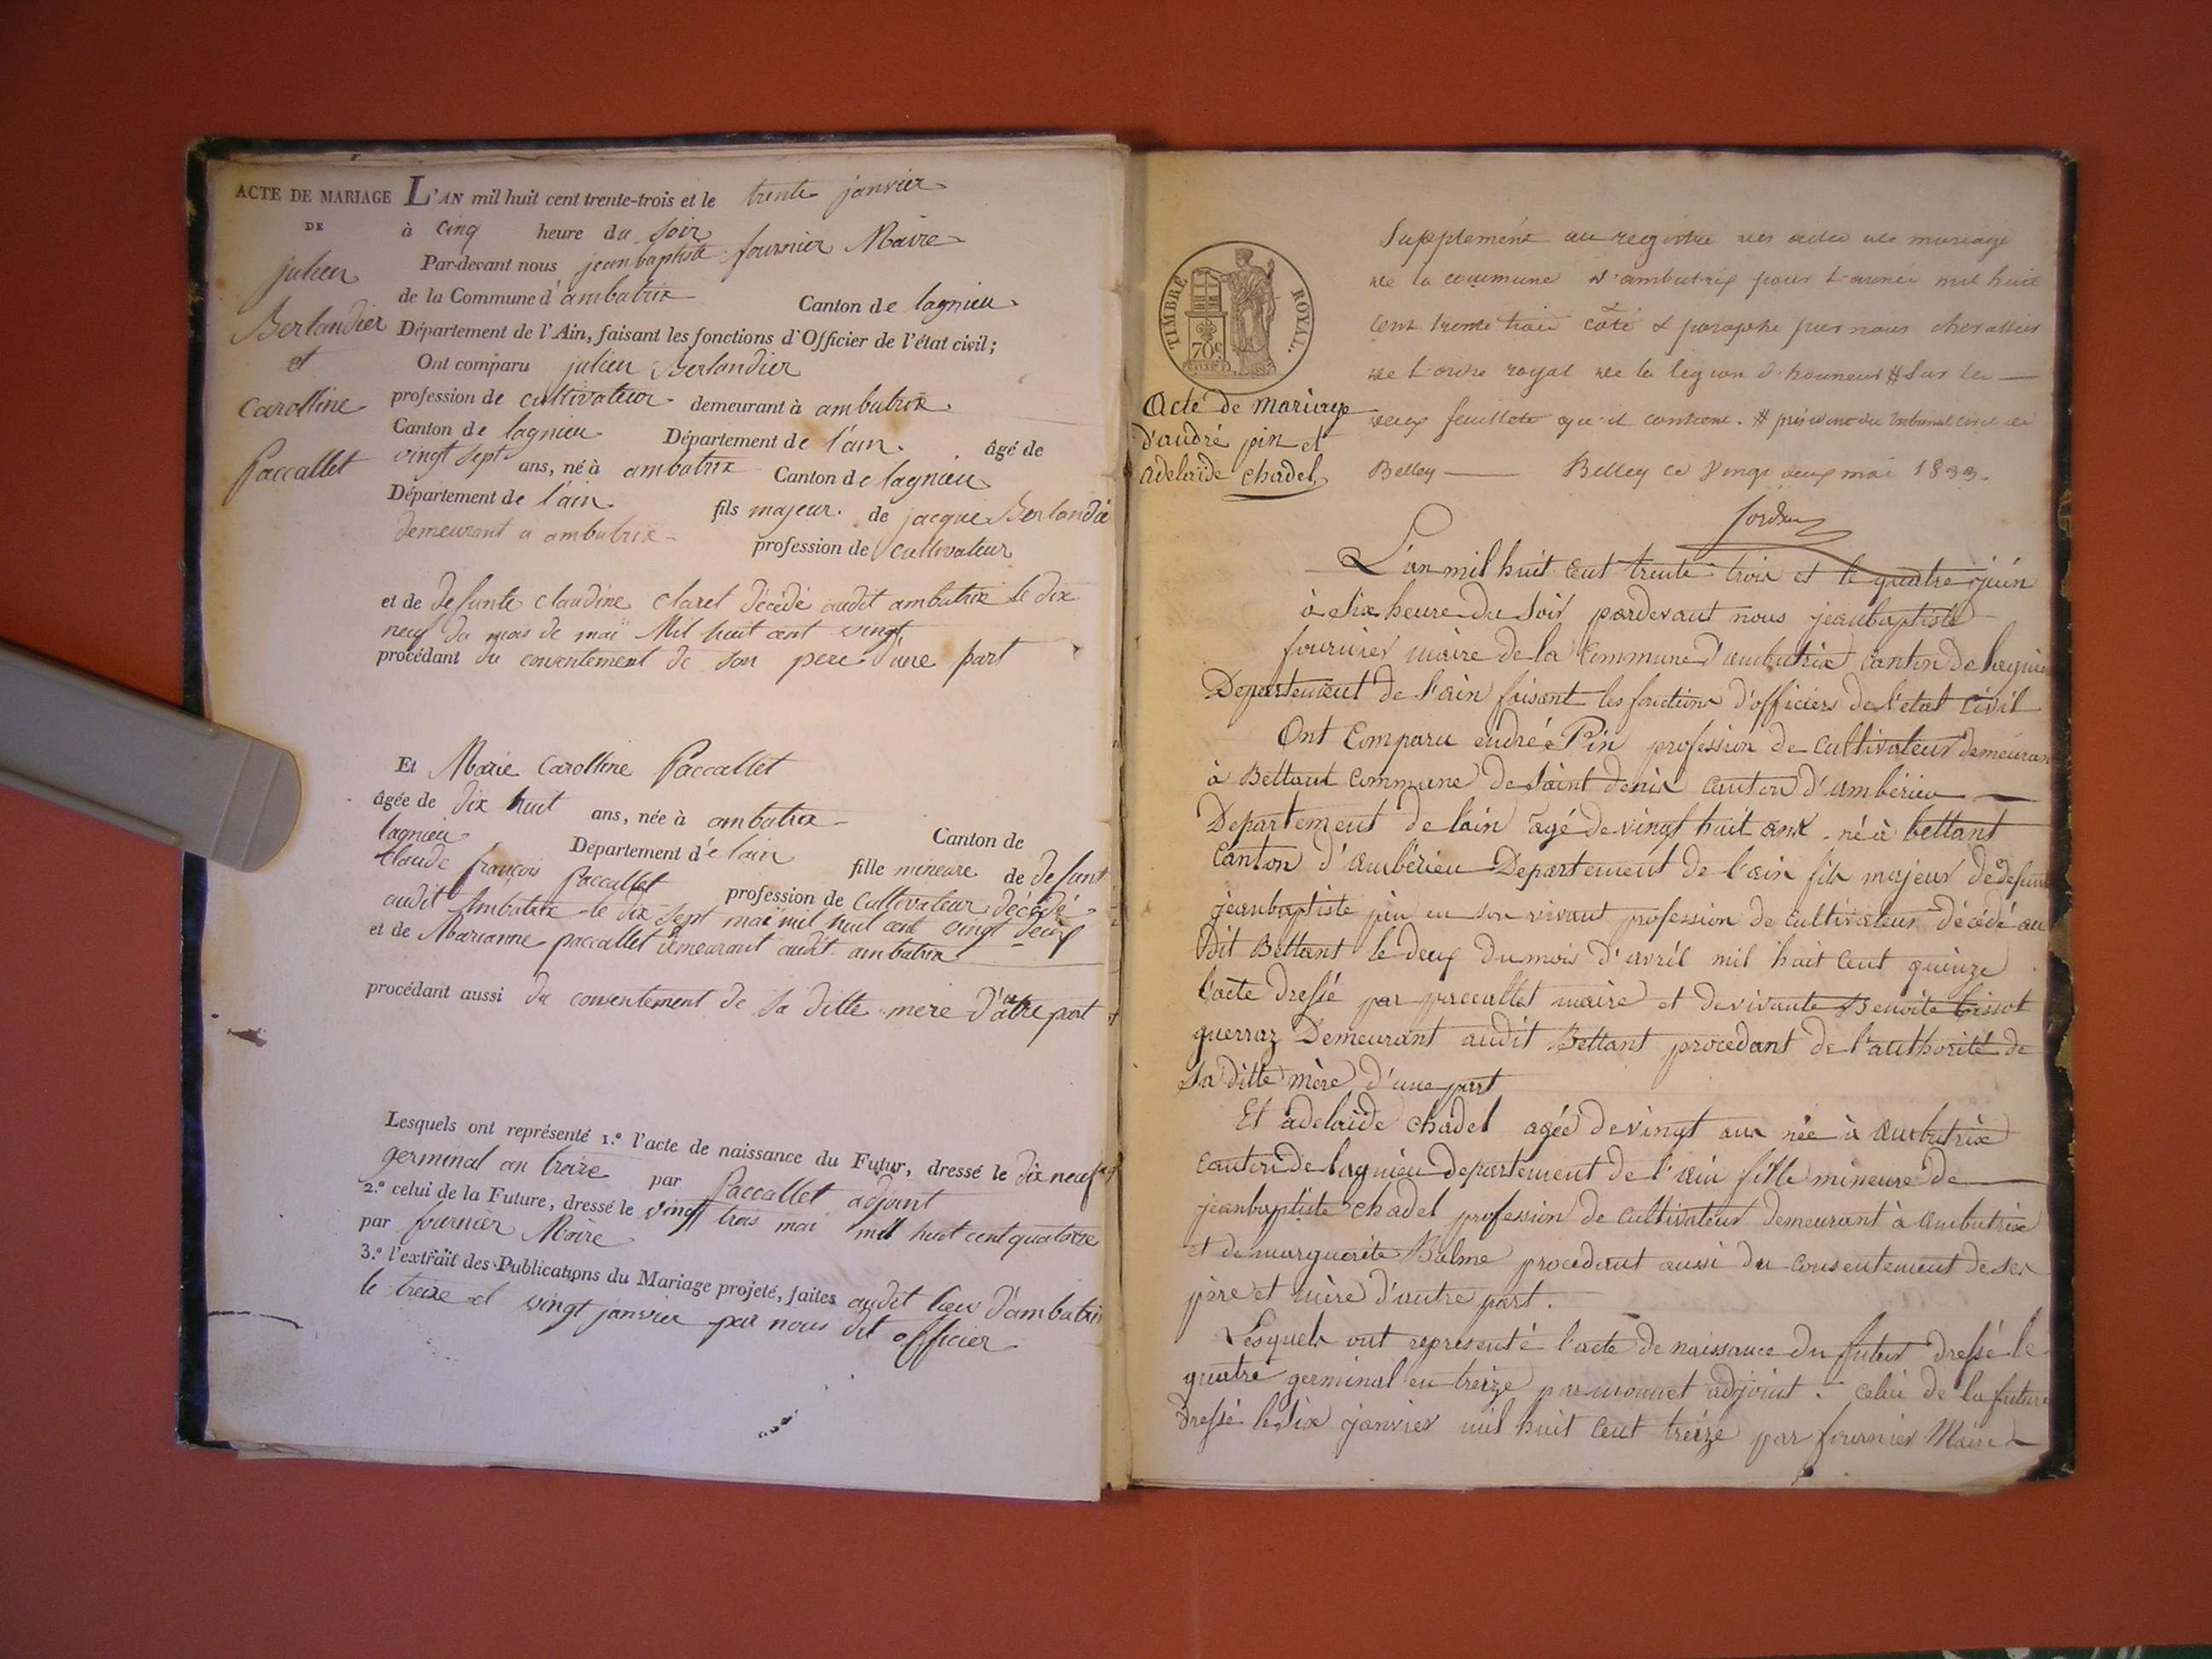 ACTE DE MARIAGE L'AN mil huit cent trente-trois et le trente janvier
DE
à cinq heure du soir
julien
Par-devant nous jean baptiste fournier Maire
de la Commune d'ambutrix Canton de lagnieu
Berlandier
Département de l'Ain, faisant les fonctions d'Officier de l'état civil;
et
Ont comparu julien Berlandier
Carolline
profession de cultivateur demeurant à ambutrix
Canton de lagnieu Département de l'ain âgé de
Paccallet
vingt sept ans, né à ambutrix Canton de lagnieu
Département de l'ain fils majeur de jacque Berlandié
demeurant a ambutrix profession de cultivateur
et de defunte claudine claret décédé audit ambutrix le dix
neuf du mois de mai Mil huit cent vingt
procédant du consentement de son pere d'une part
Et Marie Carolline Paccallet
âgée de dix huit ans, née à ambutrix Canton de
lagnieu Département d'e l'ain fille mineure de defunt
claude françois paccallet profession de cultivateur décédé
audit Ambutrix le dix sept mai mil huit cent vingt deux
et de Marianne paccallet demeurant audit ambutrix
procédant aussi du consentement de sa ditte mere d'autre part
Lesquels ont représenté 1.º l'acte de naissance du Futur, dressé le dix neuf
germinal an treize par Paccallet adjoint
2.º celui de la Future, dressé le vingt trois mai mil huit cent quatorze
par fournier Maire
3.º l'extrait des Publications du Mariage projeté, faites audit lieu d'ambutrix
le treize et vingt janvier par nous dit officier
TIMBRE ROYAL.
70c
Supplément au registre des actes de mariage
de la commune d'ambutrix pour l'année mil huit
cent trente trois coté & paraphé par nous chevallier
de l'ordre royal de la légion d'honneur # Sur les
deux feuillets qu'il contient. # président du tribunal civil de
Belley Belley ce vingt deux mai 1833.
Acte de mariage
d'andré pin et
adelaïde chadel
L'an mil huit cent trente trois et le quatre juin
à Six heure du Soir pardevant nous jeanbaptiste
fournier maire de la Commune d'ambutrix Canton de lagnieu
Departement de l'ain faisant les fonctions d'officiers de l'etat Civil
Ont Comparu andré Pin profession de Cultivateur demeurant
à Bettant Commune de Saint denis Canton d'ambérieu
Departement de lain agé de vingt huit ans né à bettant
Canton d'ambérieu Departement de l'ain fils majeur de defunt
jeanbaptiste pin en son vivant profession de Cultivateur décédé au
dit Bettant le deux du mois d'avril mil huit Cent quinze
l'acte dressé par paccallet maire et de vivante Benoite
guerraz Demeurant audit Bettant procedant de l'authorité de
sa ditte mère d'une part
Et adelaïde chadel agée de vingt ans née à ambutrix
canton de lagnieu departement de l'ain fille mineure de
jeanbaptiste chadel profession de cultivateur demeurant à ambutrix
et de marguerite Balme procedant aussi du Consentement de ses
père et mère d'autre part.
Lesquels ont representé l'acte de naissance du futur dressé le
quatre germinal an treize par monnet adjoint. Celui de la future
dressé le Six janvier mil huit Cent treize par fournier Maire